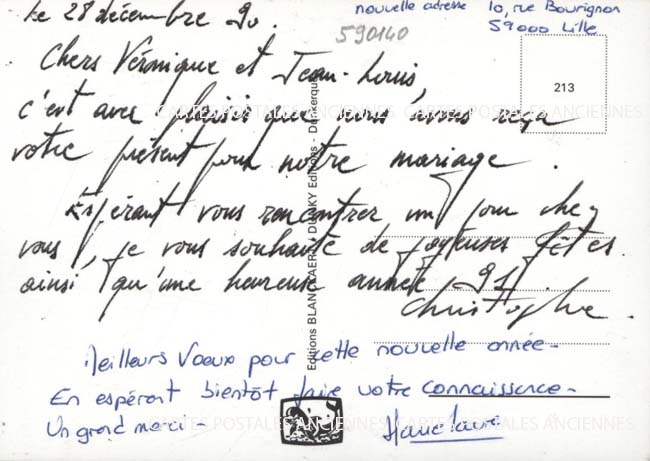 le 28 décembre 90.
nouvelle adresse 10, rue Bourignon
59000 Lille
590140
213
Chers Véronique et Jean-Louis,
c'est avec plaisir que nous avons reçu
votre présent pour notre mariage.
Espérant vous rencontrer un jour chez
vous, je vous souhaite de joyeuses fêtes
ainsi qu'une heureuse année 91
Christophe.
Meilleurs Vœux pour cette nouvelle année -
En espérant bientôt faire votre connaissance -
Un grand merci -
Editions BLANCKAERT DUNKY Editions - Dunkerque
CARTES POSTALES ANCIENNES CARTES POSTALES ANCIENNES
CARTES POSTALES ANCIENNES CARTES POSTALES ANCIENNES